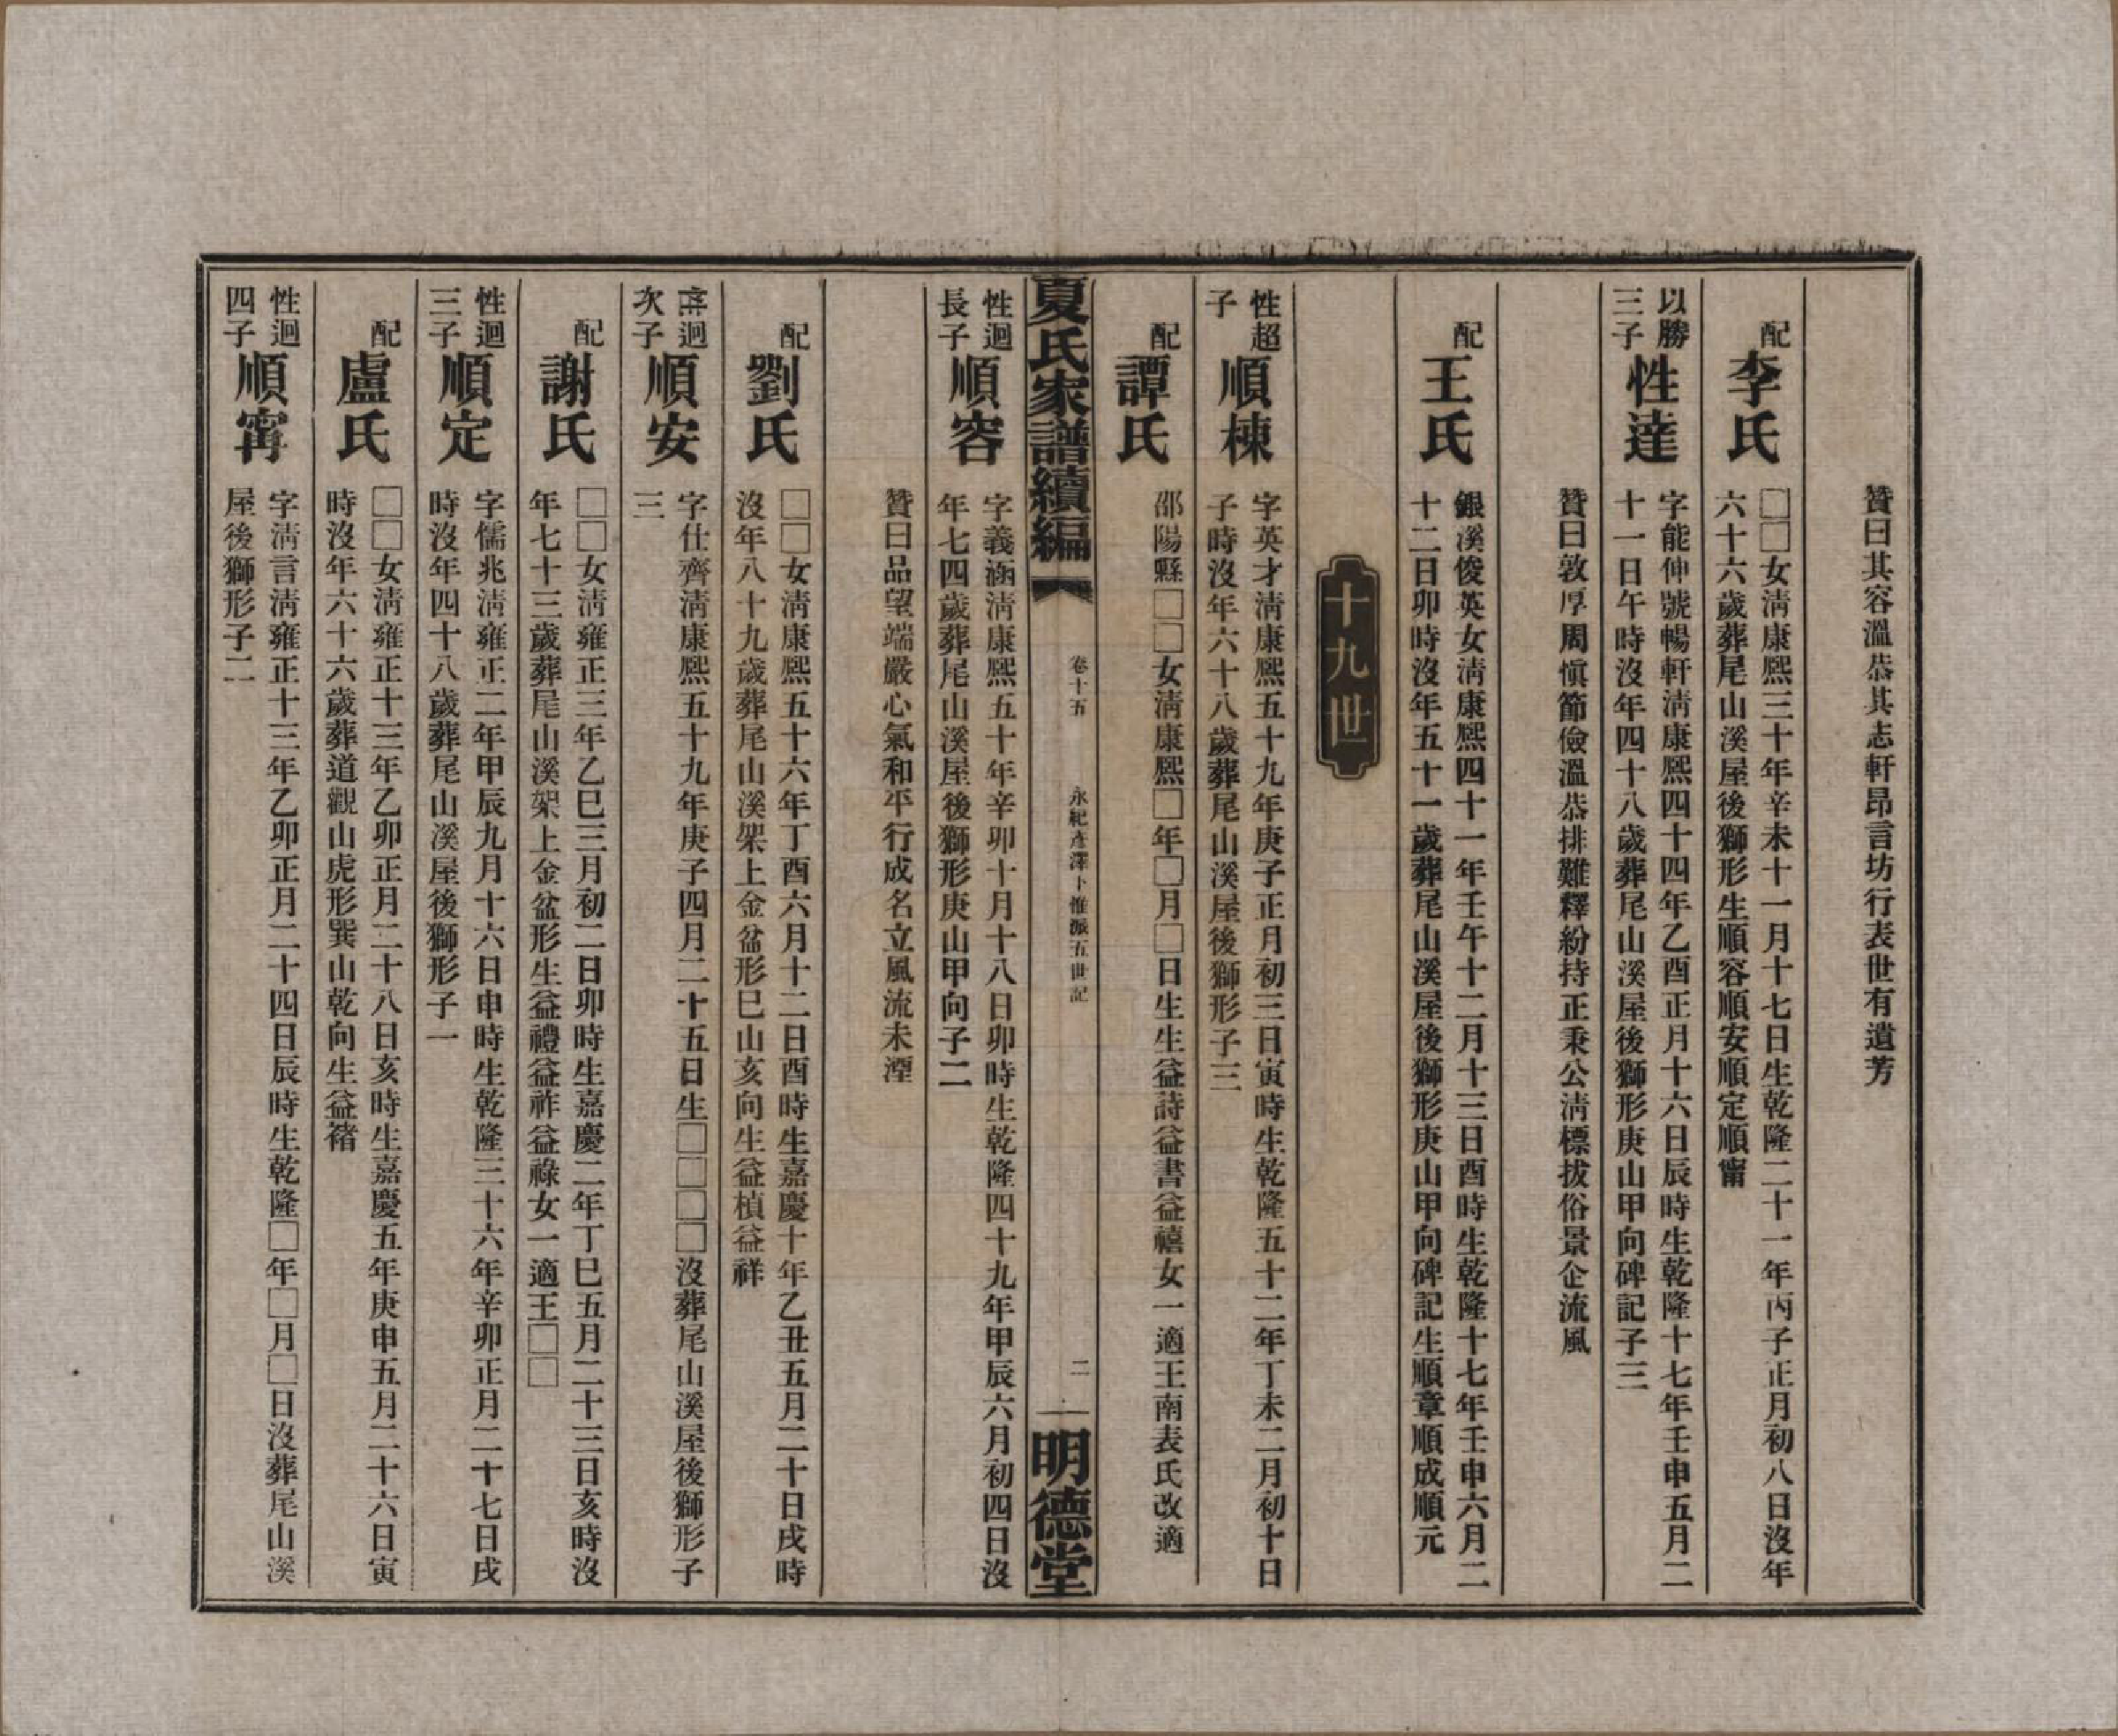 贊曰其容溫恭其志軒昂言坊行表世有遺芳
配
李氏
□□女淸康熙三十年辛未十一月十七日生乾隆二十一年丙子正月初八日沒年
六十六歲葬尾山溪屋後獅形生順容順安順定順甯
以勝
三子
性達
字能伸號暢軒淸康熙四十四年乙酉正月十六日辰時生乾隆十七年壬申五月二
十一日午時沒年四十八歲葬尾山溪屋後獅形庚山甲向碑記子三
贊曰敦厚周愼節儉溫恭排難釋紛持正秉公淸標拔俗景企流風
配
王氏
銀溪俊英女淸康熙四十一年壬午十二月十三日酉時生乾隆十七年壬申六月二
十二日卯時沒年五十一歲葬尾山溪屋後獅形庚山甲向碑記生順章順成順元
十九世
性超
子
順棟
字英才淸康熙五十九年庚子正月初三日寅時生乾隆五十二年丁未二月初十日
子時沒年六十八歲葬尾山溪屋後獅形子三
配
譚氏
邵陽縣□□女淸康熙□年□月□日生生益詩益書益禧女一適王南表氏改適
夏氏家譜續編
卷十五
永紀彥澤卜惟派五世記
二
明德堂
性迴
長子
順容
字義涵淸康熙五十年辛卯十月十八日卯時生乾隆四十九年甲辰六月初四日沒
年七四歲葬尾山溪屋後獅形庚山甲向子二
贊曰品望端嚴心氣和平行成名立風流未湮
配
劉氏
□□女淸康熙五十六年丁酉六月十二日酉時生嘉慶十年乙丑五月二十日戌時
沒年八十九歲葬尾山溪架上金盆形巳山亥向生益楨益祥
迴
次子
順安
字仕齊淸康熙五十九年庚子四月二十五日生□□□□沒葬尾山溪屋後獅形子
三
配
謝氏
□□女淸雍正三年乙巳三月初二日卯時生嘉慶二年丁巳五月二十三日亥時沒
年七十三歲葬尾山溪架上金盆形生益禮益祚益祿女一適王□□
性迴
三子
順定
字儒兆淸雍正二年甲辰九月十六日申時生乾隆三十六年辛卯正月二十七日戌
時沒年四十八歲葬尾山溪屋後獅形子一
配
盧氏
□□女淸雍正十三年乙卯正月二十八日亥時生嘉慶五年庚申五月二十六日寅
時沒年六十六歲葬道觀山虎形巽山乾向生益禇
性迴
四子
順甯
字淸言淸雍正十三年乙卯正月二十四日辰時生乾隆□年□月□日沒葬尾山溪
屋後獅形子二